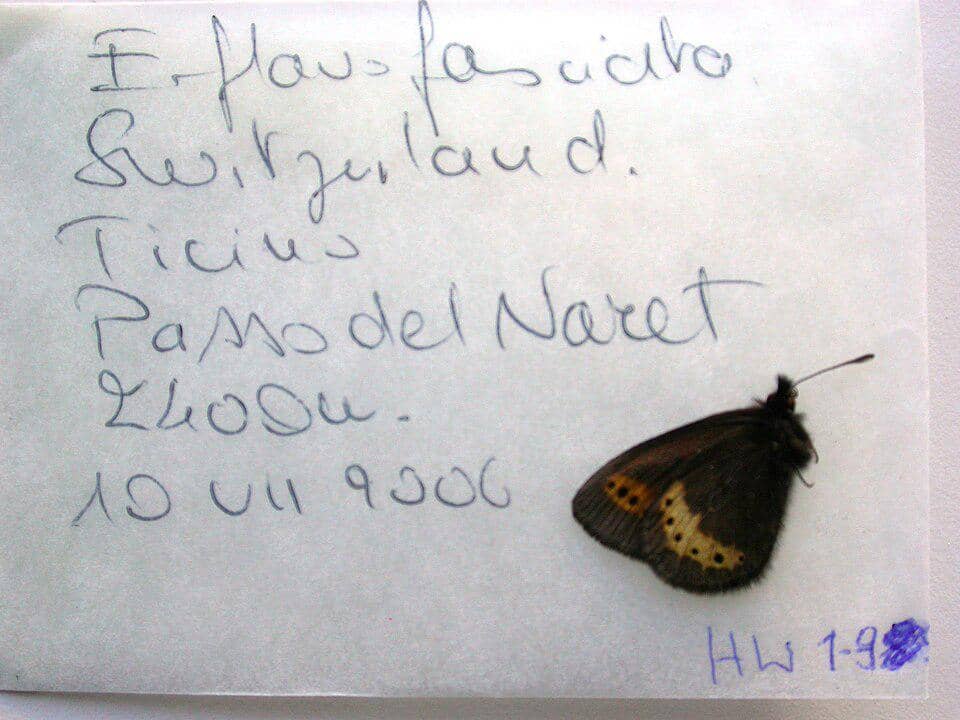 E. flavofasciata.
Switzerland.
Ticino
Passo del Naret
2400m.
10 VII 2006
HW 1-9